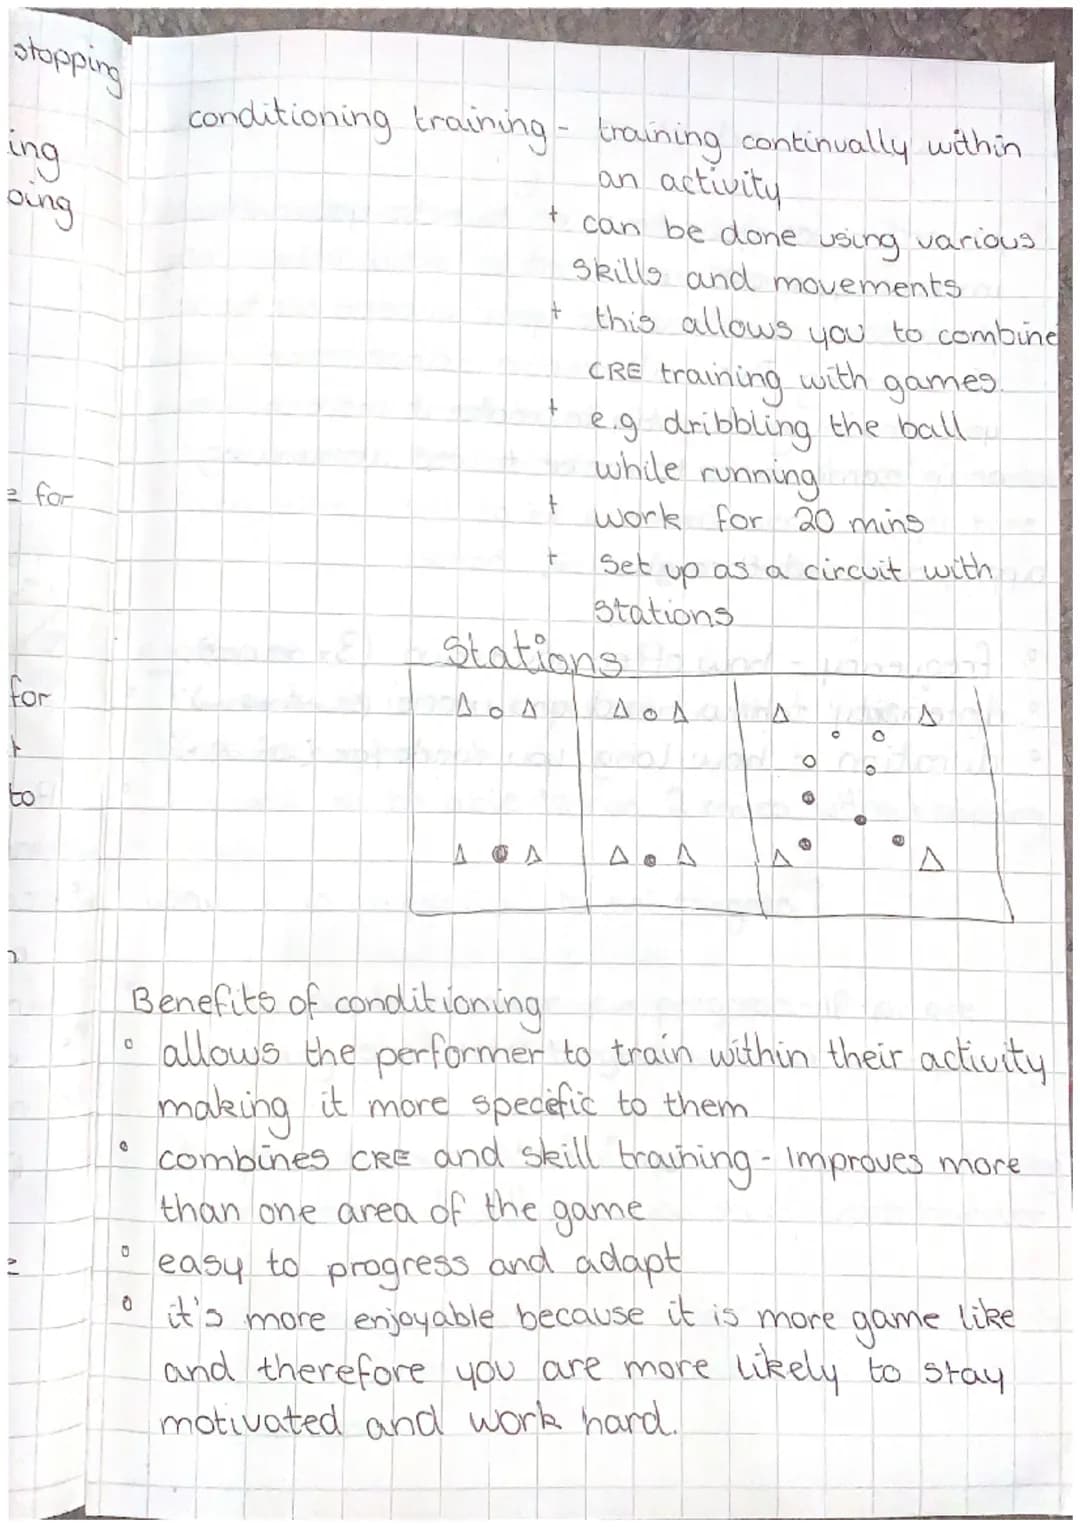 stopping
ing
oing
e for
for
t
to
conditioning training - training continually within
an activity
+ can be done using various
skills and movements
+ this allows you to combine
CRE training with games.
+ e.g dribbling the ball
while running
+ work for 20 mins
+ set up as a circuit with
stations
Stations
Benefits of conditioning
° allows the performer to train within their activity
making it more specific to them
° combines CRE and skill training - improves more
than one area of the game
° easy to progress and adapt
° it's more enjoyable because it is more game like
and therefore you are more likely to stay
motivated and work hard.